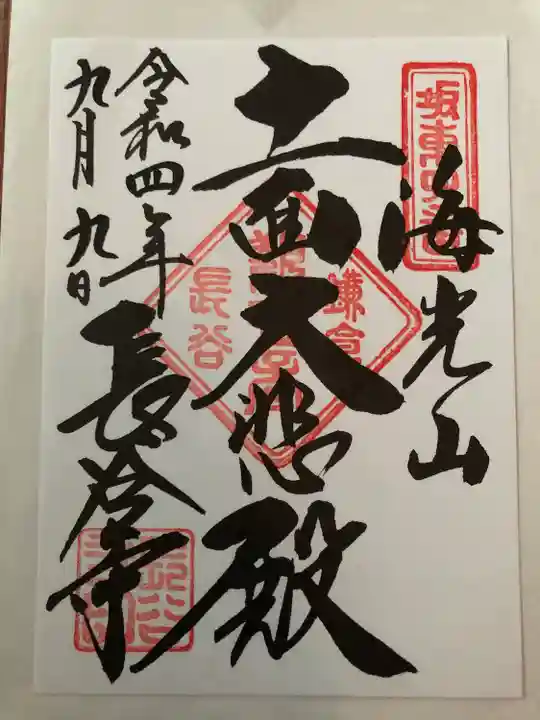 坂東四番
海光山
十一面大悲殿
鎌倉
長谷
令和四年
九月九日
長谷寺